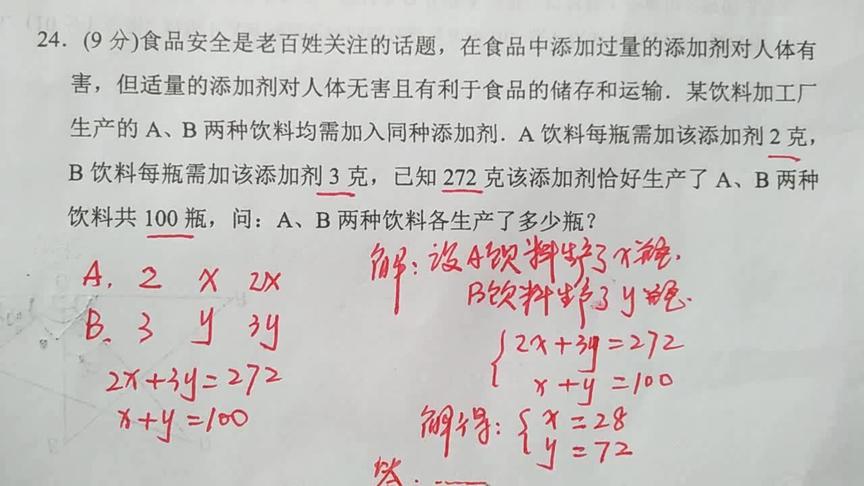 24. (9 分)食品安全是老百姓关注的话题，在食品中添加过量的添加剂对人体有
害，但适量的添加剂对人体无害且有利于食品的储存和运输．某饮料加工厂
生产的 A、B 两种饮料均需加入同种添加剂．A 饮料每瓶需加该添加剂 2 克，
B 饮料每瓶需加该添加剂 3 克，已知 272 克该添加剂恰好生产了 A、B 两种
饮料共 100 瓶，问：A、B 两种饮料各生产了多少瓶？
A. 2 x 2x
B. 3 y 3y
2x+3y=272
x+y=100
解：设A饮料生产了x瓶.
B饮料生产了y瓶.
2x+3y=272
x+y=100
解得： x=28
y=72
答：